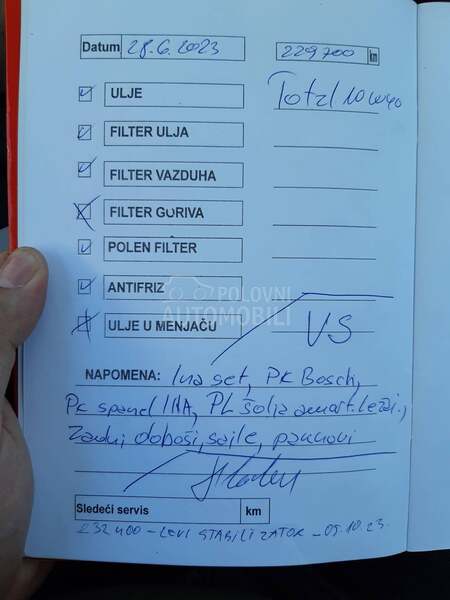 Datum 28.6.2023 229700 km
ULJE Total 10w40
FILTER ULJA
FILTER VAZDUHA
FILTER GORIVA
POLEN FILTER
ANTIFRIZ
POLOVNI
AUTOMOBILI
ULJE U MENJAČU VS
NAPOMENA: Ina set, PK Bosch,
PK španel INA, PL šolja amort. ležaj.,
Zadnji doboši, sajle, paknovi
Sledeći servis km
232400 - LEVI STABILIZATOR - 09.10.23.